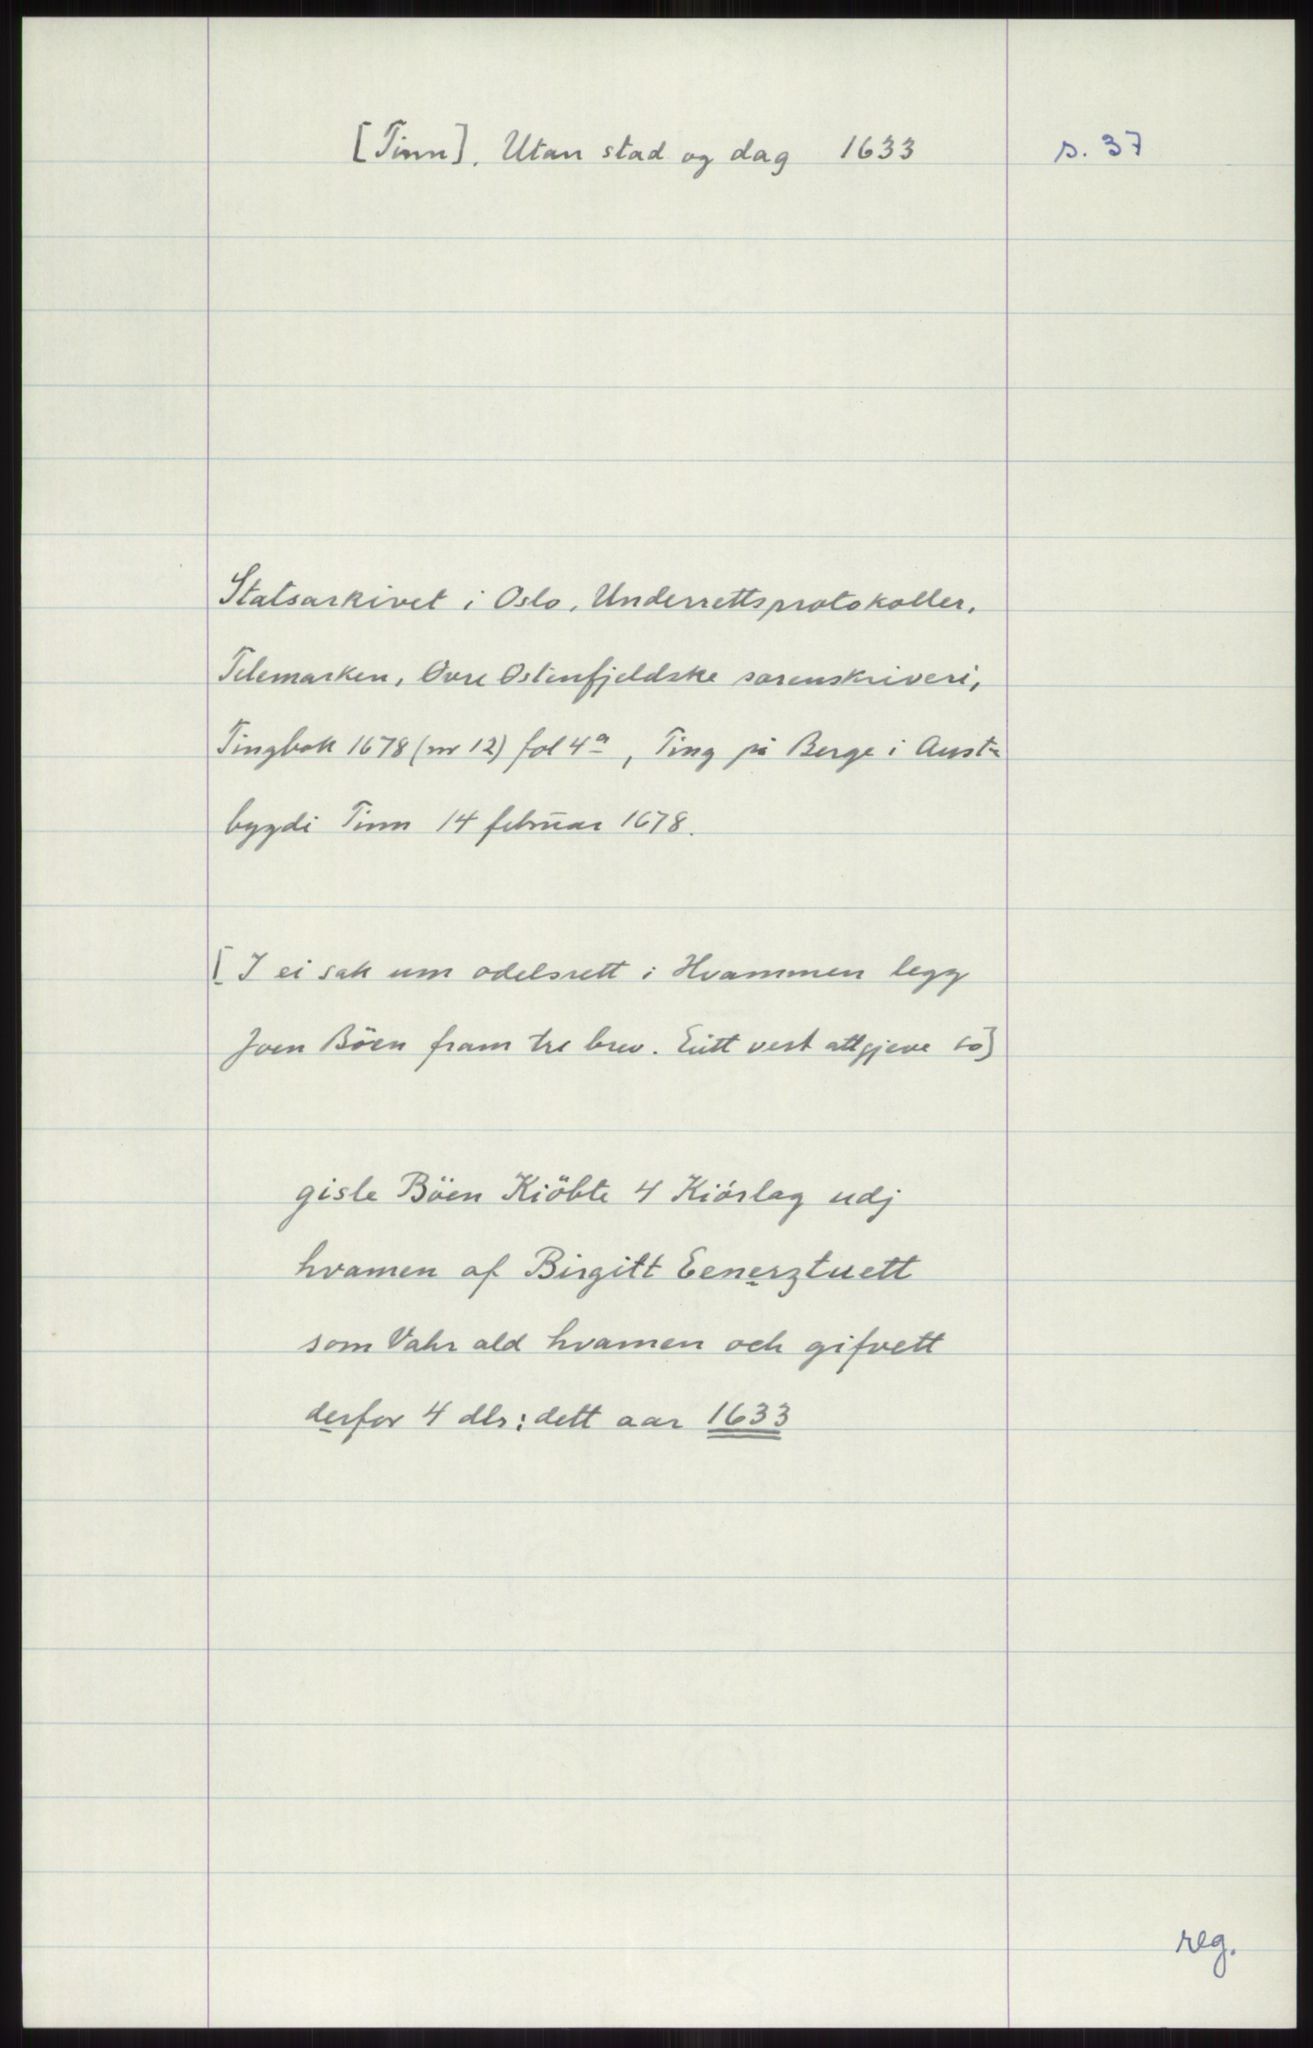 [Tinn]. Utan stad og dag 1633
s. 37
Statsarkivet i Oslo, Underrettsprotokoller,
Telemarken, Øvre Østenfjeldske sorenskriveri,
Tingbok 1678 (nr 12) fol 4a, Ting på Berge i Aust-
bygdi Tinn 14 februar 1678.
[I ei sak um odelsrett i Hvammen legg
Joen Böen fram tre brev. Eitt vert attgjeve so]
gisle Böen Kiöbte 4 Kiörlag udj
hvamen af Birgitt Eenerztuett
som Vahr ald hvamen och gifvett
derfor 4 dlr: dett aar 1633
reg.